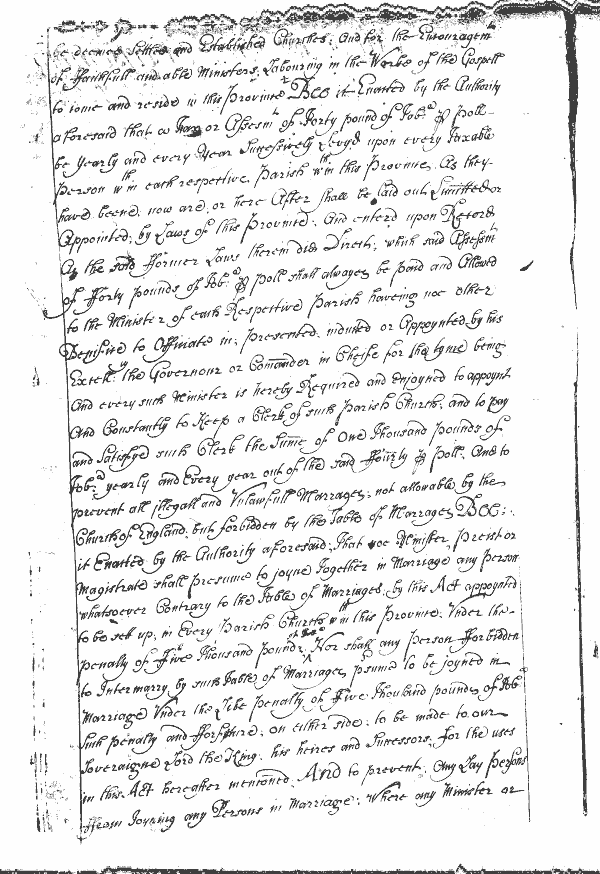 be deemed settled and Established Churches; And for the Encouragemt
of ffaithfull and able Ministers, Labouring in the Worke of the Gospell
to come and reside in this Province Bee it Enacted by the Authority
aforesaid that a Tax or Assesmt of Forty pound of Tobo ℘ Poll
be yearly and every Year Successively Levyed upon every Taxable
Person wthin each respective Parish wthin this Province, As they
have beene, now are, or here After shall be laid out, Limitted or
Appointed, by Laws of this Province; And enterd upon Record
As the said fformer Laws therein did Direct; which said Assesmt
of fforty pounds of Tobo ℘ poll shall always be paid and Allowed
to the Minister of each Respective Parish haveing noe other
to Officiate in; Presented, inducted or Appoynted by his
Excellcy the Governour or Comander in Cheife for the tyme being
And every such Minister is hereby Required and enjoyned to appoynt
And Constantly to Keep a Clerk of such Parish Church, and to pay
and Satisfye such Clerk the Sume of One Thousand pounds of
Tobo yearly and Every year out of the said ffourty ℘ Poll. And to
prevent all illegall and Unlawfull Marrages; not allowable by the
Church of England, but forbidden by the Table of Marrages Bee
it Enacted by the Authority aforesaid, That noe Minister, Preist or
Magistrate shall presume to joyne Together in Marriage any Person
whatsoever Contrary to the Table of Marriages, by this Act appoynted
to be sett up, in Every Parish Church wthin this Province; Under the
penalty of Five Thousand pounds of Tobo Nor shall any Person fforbidden
to Intermarry by such Table of Marriages psume to be joyned in
Marriage Under the Like penalty of Five Thousand pounds of Tobo
Such penalty and fforfiture, on either side, to be made to our
Soveraigne Lord the King, his heires and Successors, for the uses
in this Act hereafter mentioned. And to prevent, Any Lay Persons
ffrom Joyning any Persons in Marriage; Where any Minister or